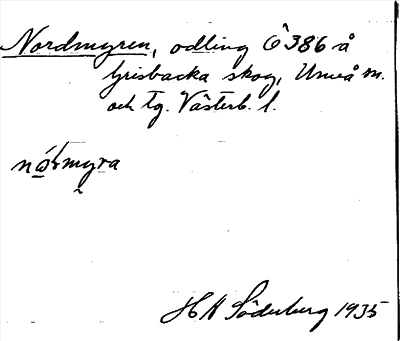 Nordmyren, odling Ô 386 å
Grisbacka skog, Umeå sn.
och tg. Västerb. l.
nó̱rmyra
H A Söderberg 1935